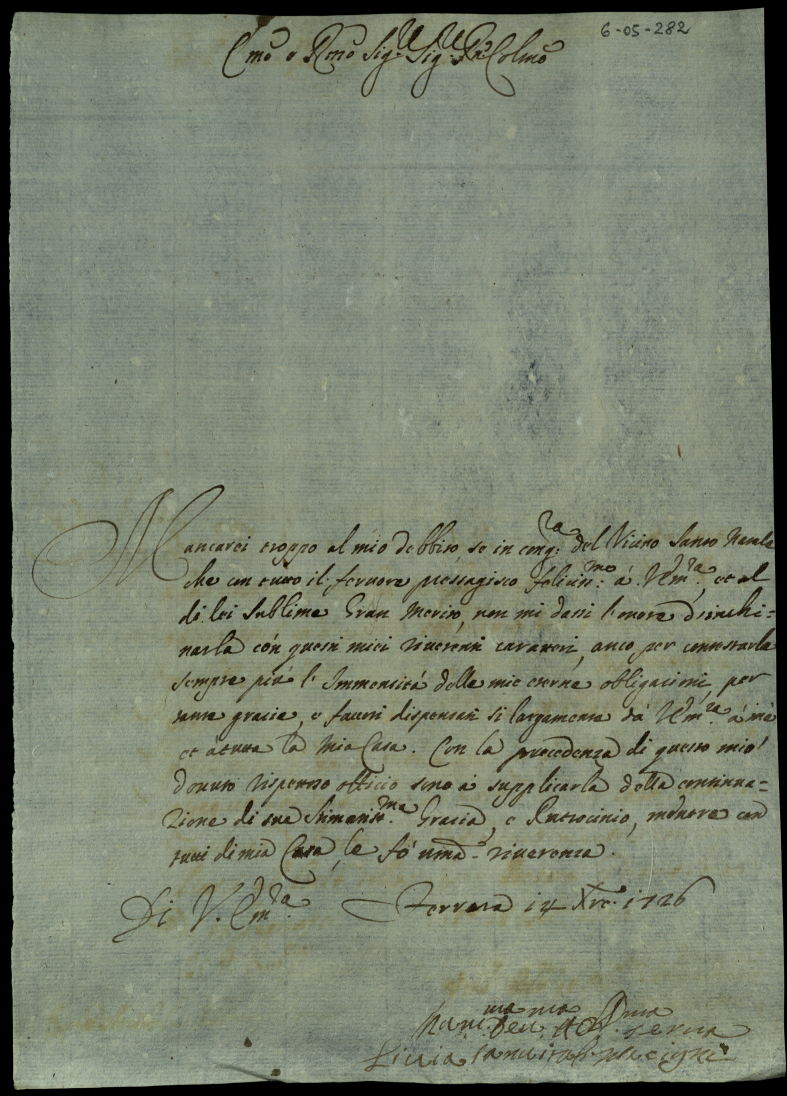 6-05-282
Emo e Rmo Sig.r Sig.r Pñ Colmo
Mancarei troppo al mio debbito, se in cong.ra del Vicino Santo Natale
che con tutto il fervore pressagisco feliciss.mo á V. Em.ra, et al
di lei sublime Gran Merito, non mi dassi l'onore d'inchi=
narla cón questi miei riverenti caratteri, anco per contestarle
sempre piú l'Immensitá delle mie eterne obligationi, per
tante grazie, e favori dispensati si largamente dá V. Em.ra á mé
et á tutta la mia Casa. Con la precedenza di questo mio
dovuto rispettoso officio sono á supplicarla della continua=
zione di sua stimatiss.ma Grazia, e Patrocinio, mentre con
tutti di mia Casa, le fó umã riverenza.
Di V. Em.ra Ferrara 14 Xre. 1726
serva
Livia